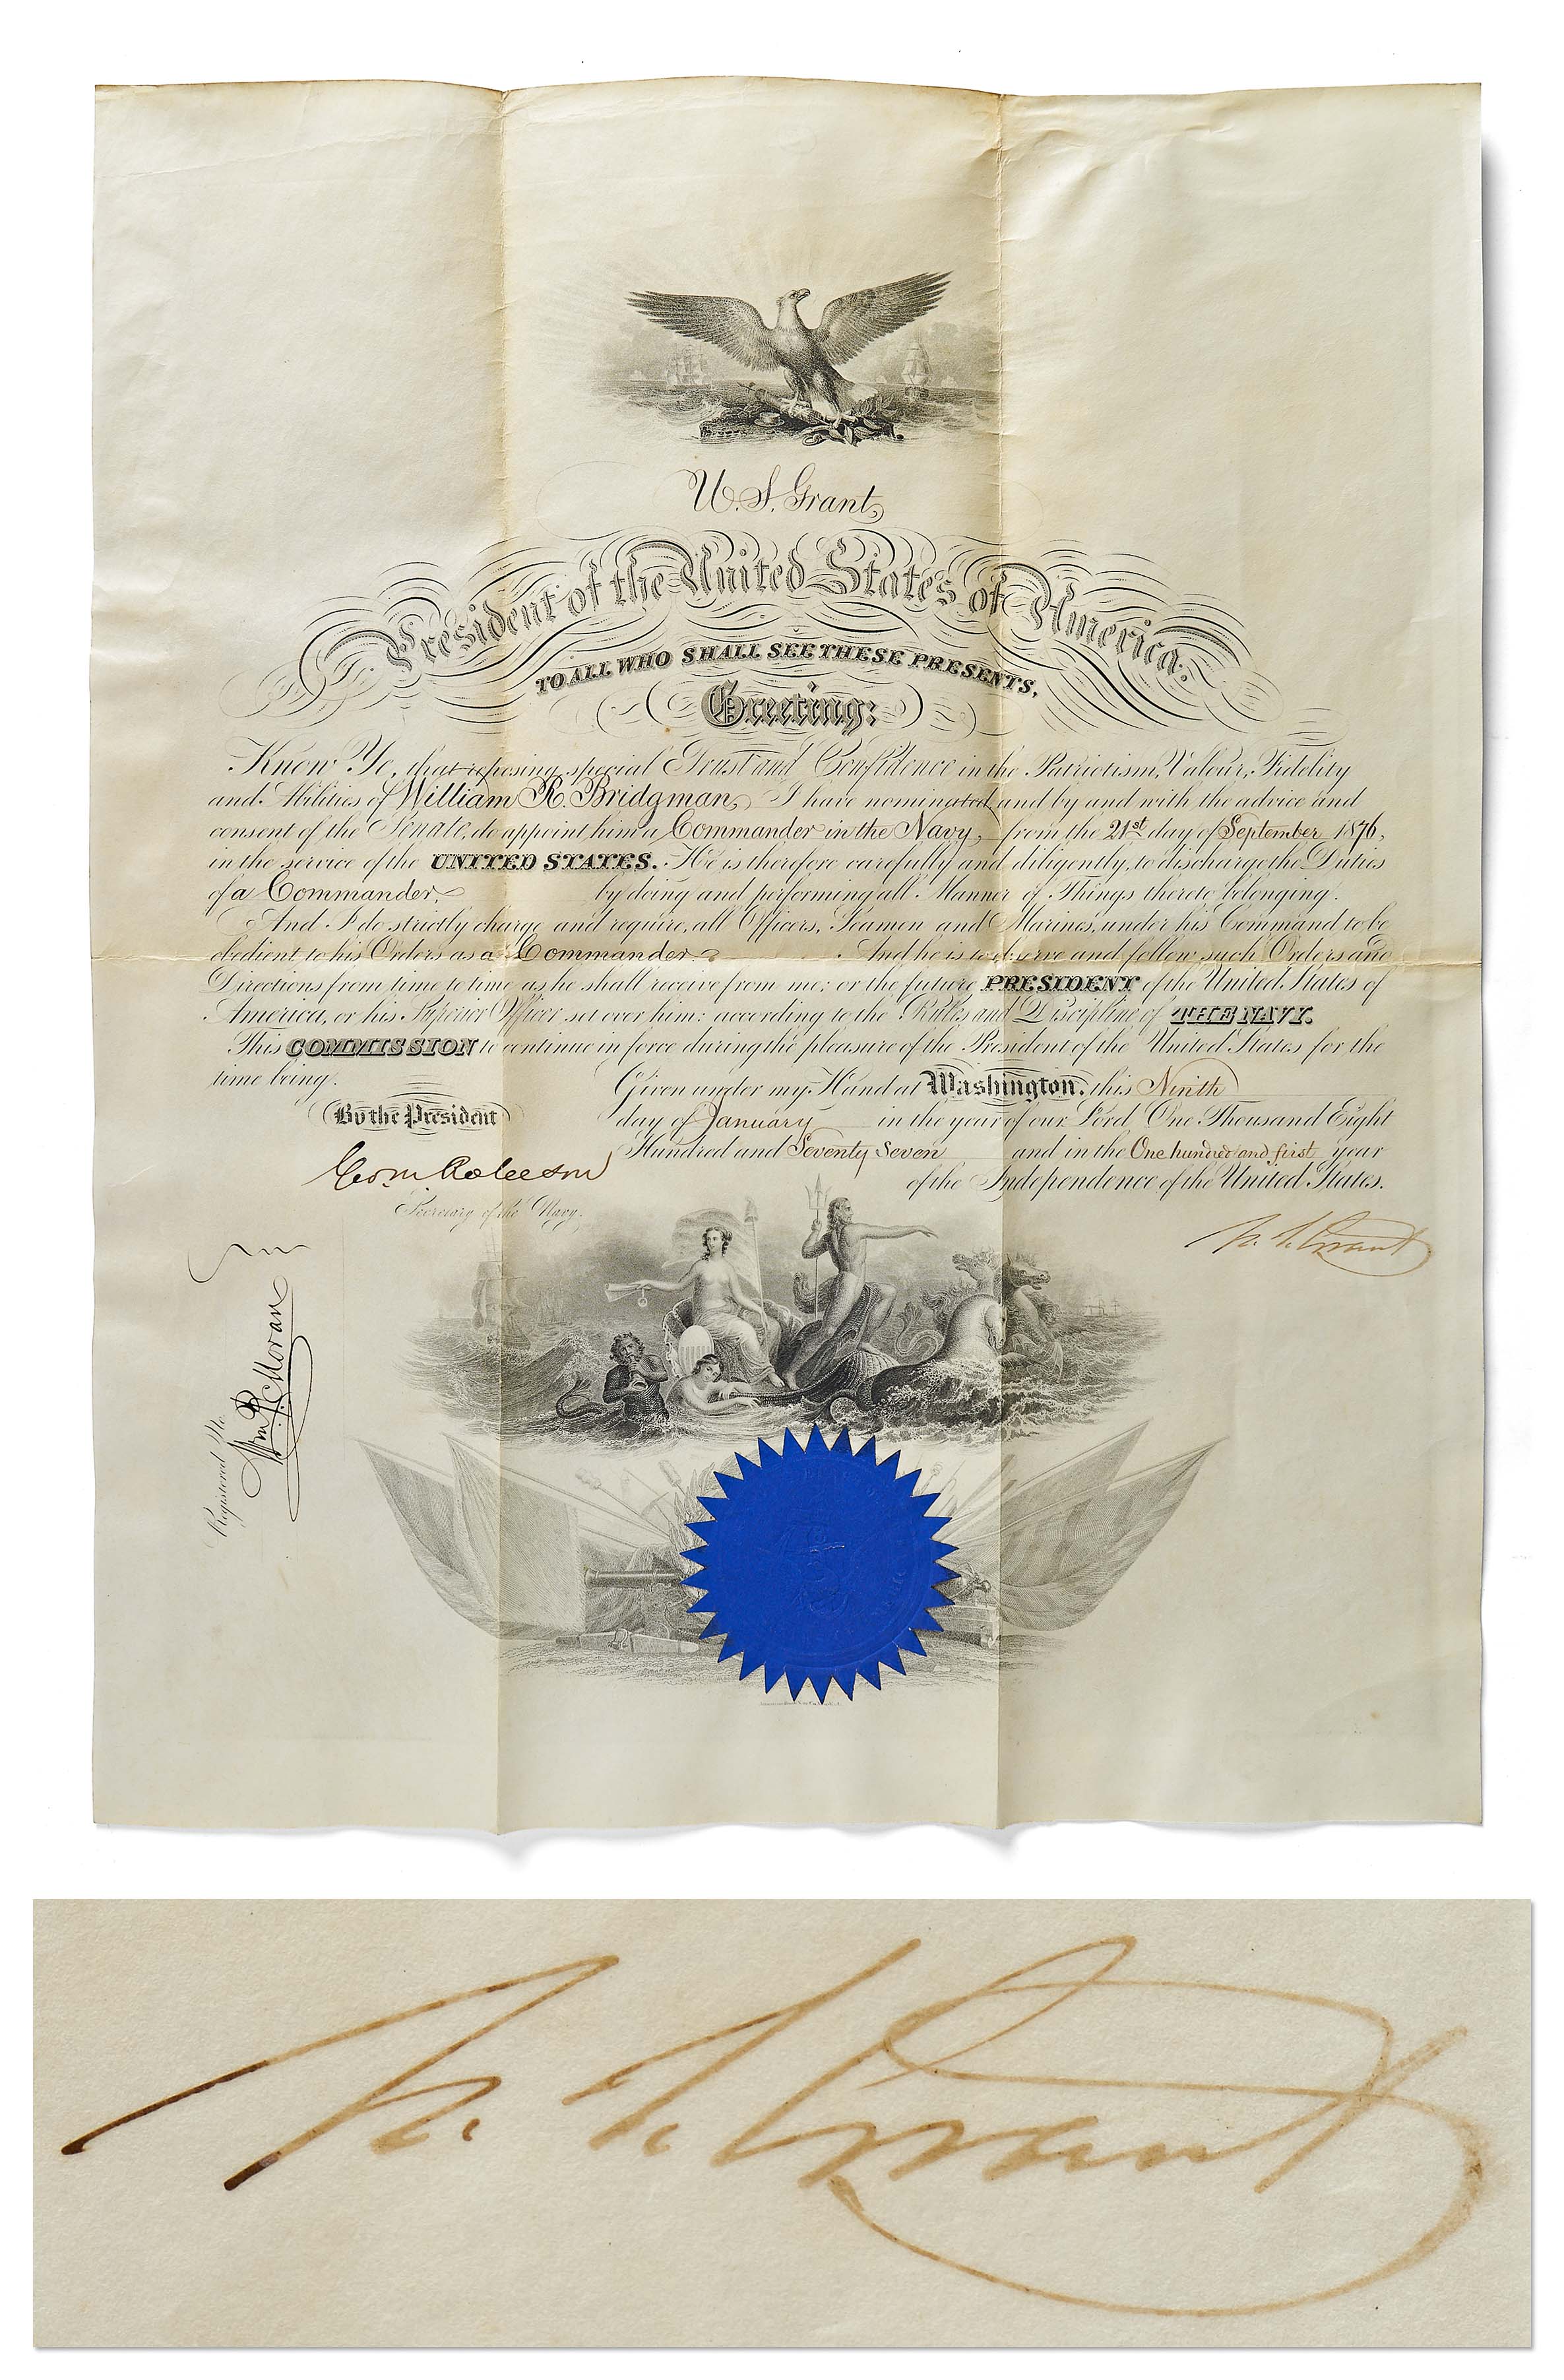 U. S. Grant,
President of the United States of America.
TO ALL WHO SHALL SEE THESE PRESENTS,
Greeting:
Know Ye, that reposing special Trust and Confidence in the Patriotism, Valour, Fidelity
and Abilities of William R. Bridgman, I have nominated and by and with the advice and
consent of the Senate, do appoint him a Commander in the Navy, from the 21st day of September 1876,
in the service of the UNITED STATES. He is therefore carefully and diligently, to discharge the Duties
of a Commander, by doing and performing all Manner of Things thereto belonging.
And I do strictly charge and require, all Officers, Seamen and Marines, under his Command to be
obedient to his Orders as a Commander. And he is to observe and follow such Orders and
Directions from time to time as he shall receive from me; or the future PRESIDENT of the United States of
America, or his Superior Officer set over him: according to the Rules and Discipline of THE NAVY.
This COMMISSION to continue in force during the pleasure of the President of the United States for the
time being.
Given under my Hand at Washington, this Ninth
By the President
day of January in the year of our Lord, One Thousand Eight
Hundred and Seventy Seven and in the One hundred and first year
Geo M Robeson
of the Independence of the United States.
Secretary of the Navy.
U. S. Grant
Registered No.
Wm P. Moran
U. S. Grant